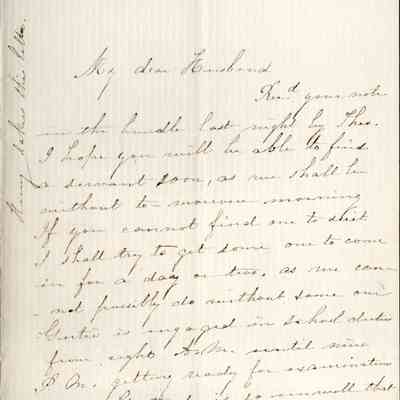 My dear Husband
Recd your note
in the bundle last night by Theo.
I hope you will be able to find
a servant soon, as we shall be
without to-morrow morning
If you cannot find one to suit
I shall try to get some one to come
in for a day or two, as we can
-not possibly do without some one
Gertie is engaged in school duties
from eight A.M. until nine
P.M. getting ready for examination
is so unwell that
takes this letter.